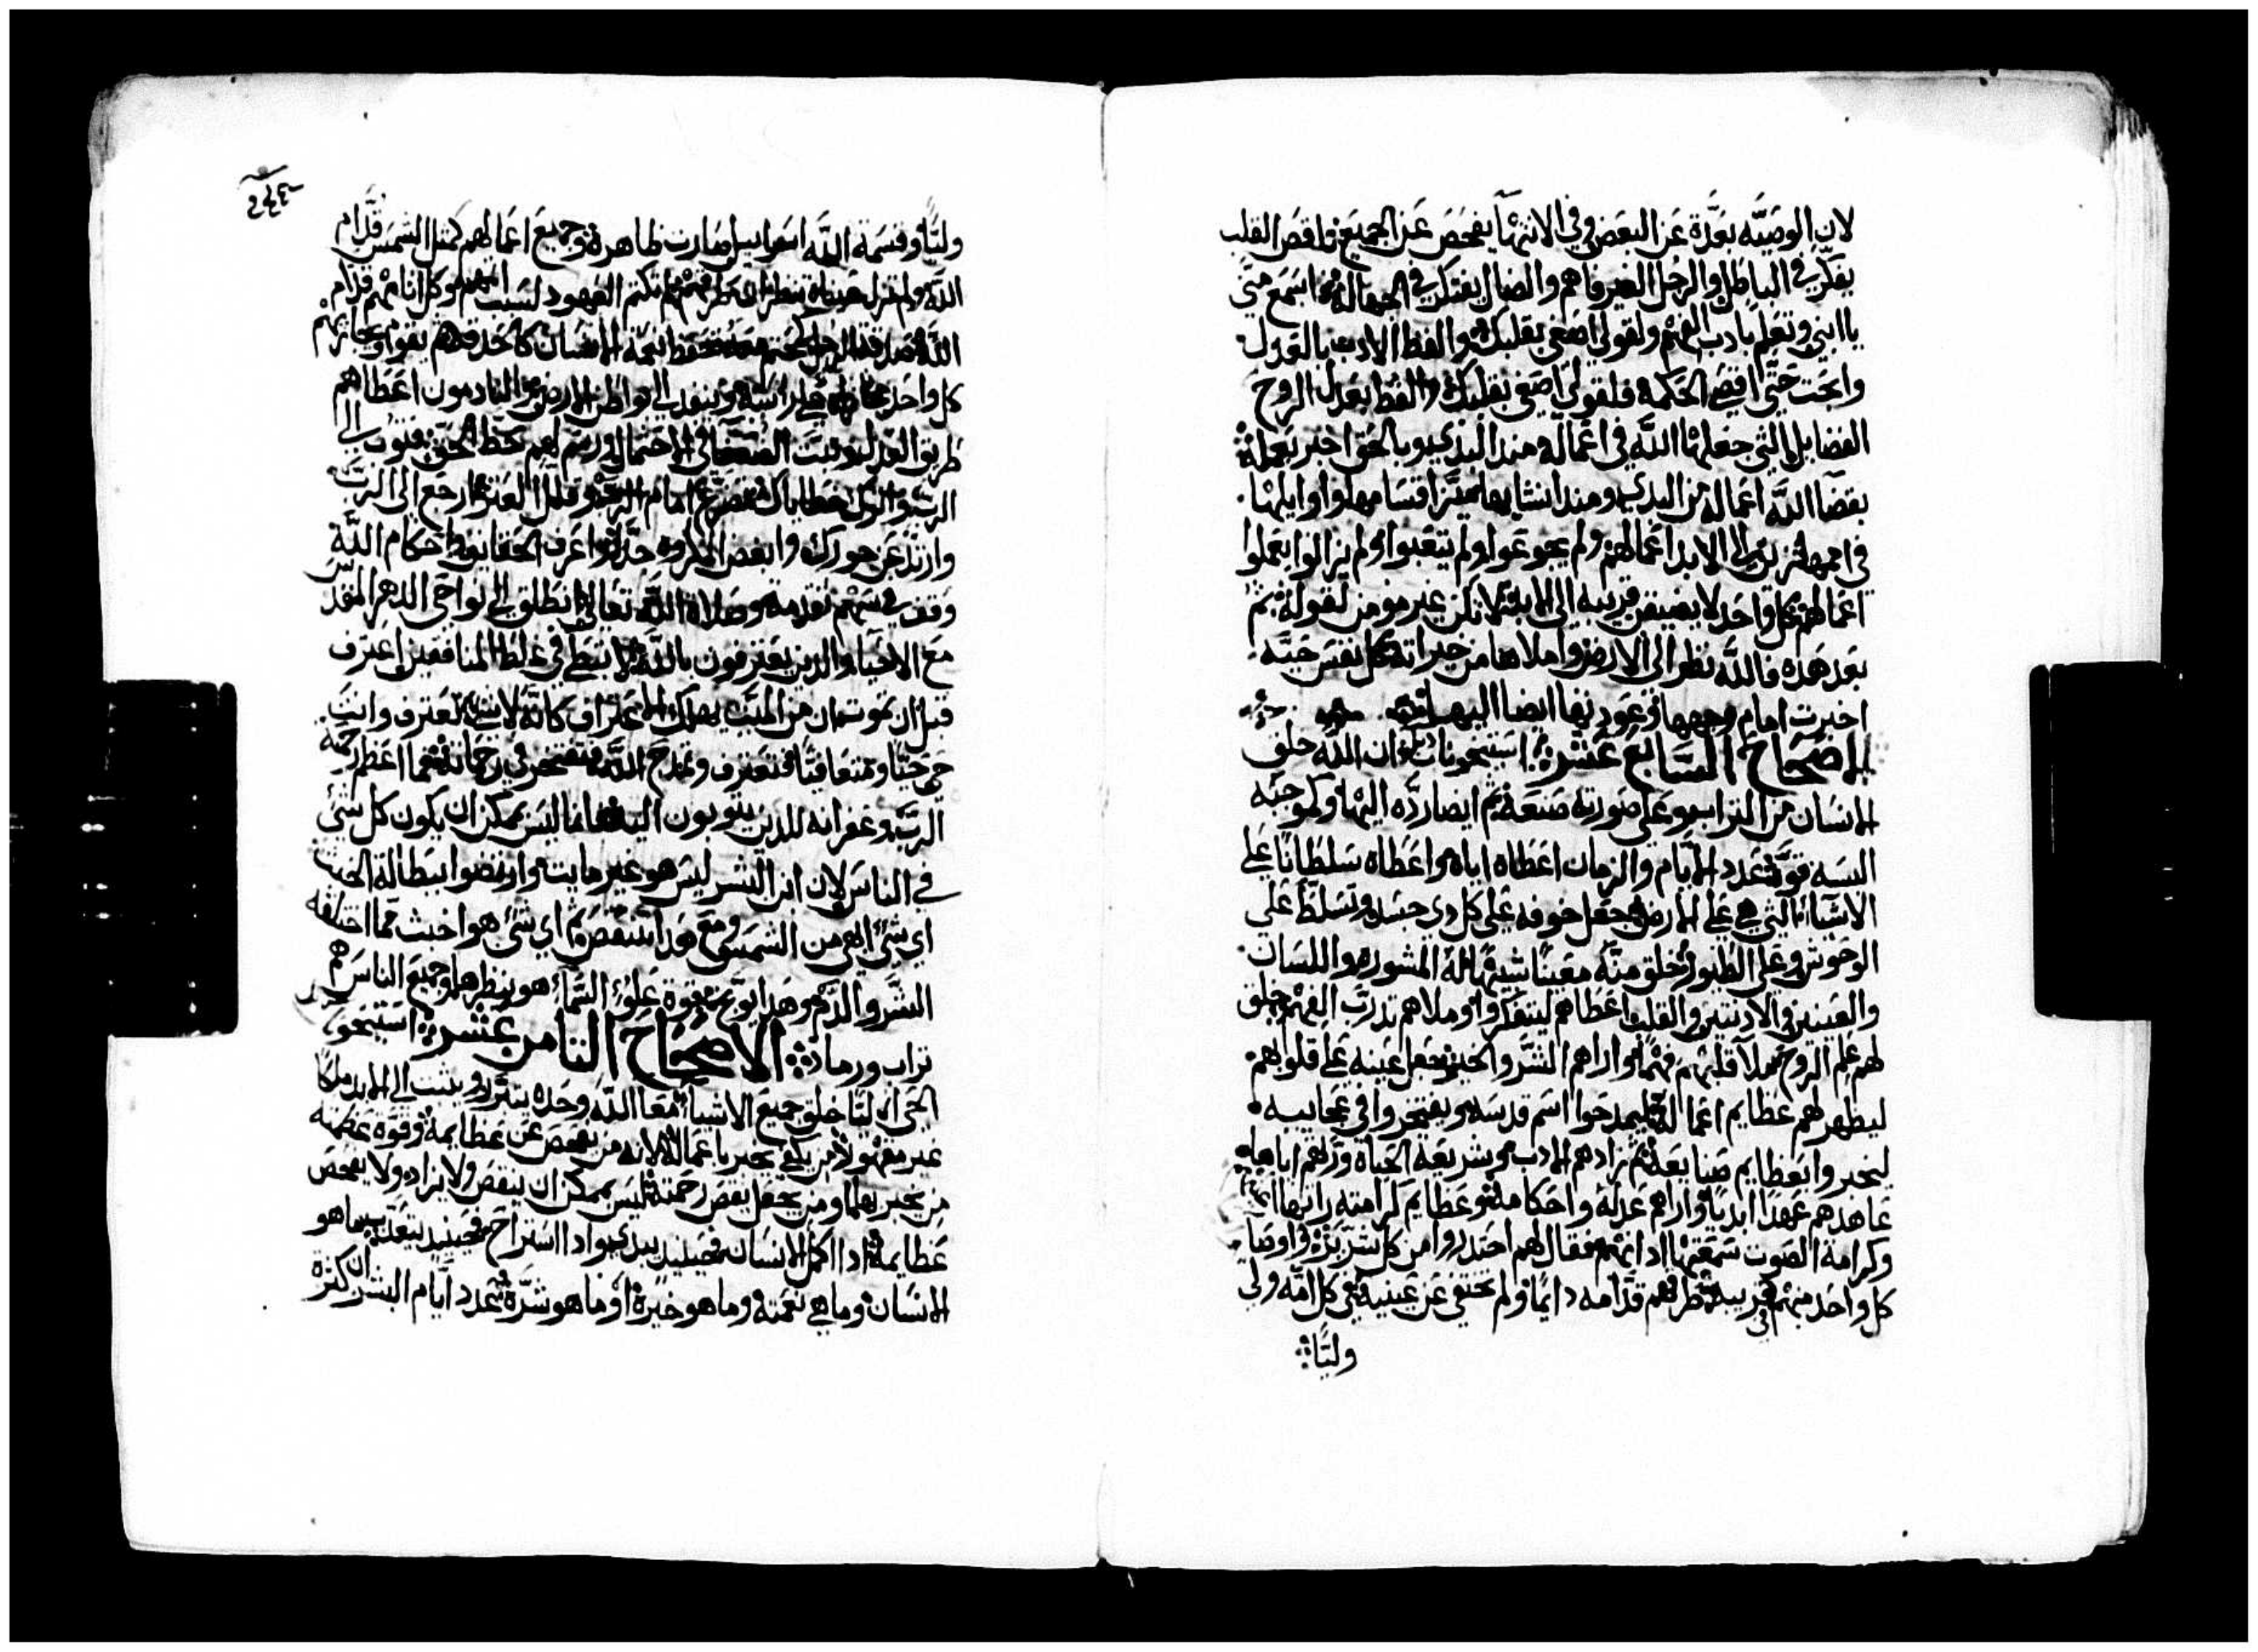 لان الوصيه بعدة عن البعض وفي الانتهآ يفحص عن الجميع ناقص القلب
يفكر في الباطل والرجل الغير فاهم والضال يفتكر في الجهالة اسمع مني
يا ابني وتعلم بادب الفهم ولقولي اصغي بقلبك والفظ الادب بالعدل
وابحت حتي اقص الحكمة فلقولي اصغي بقلبك والفظ بعدل الروح
الفضايل التي جعلها الله في اعماله منذ البدي وبالحق اخبر بعلمة
بقضآ الله اعماله من البدي ومند انشايها ميز اقسامها واوايلها
في اممها زين الي الابد اعمالهم ولم يجوعوا ولم يتعبوا ولم يزالوا يعملوا
اعمالهم كل واحد لا يضيق قريبه الي الابد لا تكن غير مومن لقوله ثم
بعد هده فالله نظر الي الارض واملاها من خيراته كل نفس حيه
اخبرت امام وجهها وعودتها ايضا اليها
الاصحاح السابع عشر استيخونات ان الله خلق
الانسان من التراب وعلي صورته صنعه ثم ايضا رده اليها وكموجبه
البسه قوة عدد الايام والزمان اعطاه اياه واعطاه سلطانا علي
الاشيآء التي هي علي الارض جعل خوفه علي كل دي جسد وتسلط علي
الوحوش وعلي الطيور خلق منه معينا شبيها له المشوره واللسان
والعينين والادنين والقلب اعطاهم ليتفكروا وملاهم تدرب الفهم خلق
لهم علم الروح ملا قلبهم فهما واراهم الشر والخير جعل عينيه علي قلوبهم
ليظهر لهم عظايم اعماله ليمدحوا اسم قدسه ويفتخروا في عجايبه
ليخبروا بعظايم صنايعة ثم زادهم الادب وشريعة الحياة ورثهم اياها
عاهدهم عهدا ابديا واراهم عدله واحكامه وعظايم كرامته راتها اعينهم
وكرامة الصوت سمعتها ادانهم فقال لهم احتدروا من كل شرير واوصا
كل واحد منهم في قريبه طرقهم قدامه دايما ولم تختفي عن عينيه علي كل امه ولي
وليا
٢٤٤
وليا وقسمة الله اسراييل صارت ظاهرة وجميع اعمالهم كمتل الشمس قدام
الله ولم تزل عيناه تنظران طرقهم لم تكتم العهود لسبب اتمهم وكل اتامهم قدام
الله صدقة الرجل كختم معه تحفظ نعمة الانسان كالحدقة ثم يقوم ويجازيهم
كل واحد علي راسه وينفد الي بواطن الارض والنادمون اعطاهم
طريق العدل وثبت الضعفآ في الاحتمال ورسم لهم حظ الحق فتوب الي
الرب واترك خطاياك تضرع امام الرب وقلل العترة ارجع الي الرب
وارتد عن جورك وابغض المكروه جدا واعرف الحقايق واحكام الله
وقف في سهم تقدمة وصلاة الله تعالي انطلق الي نواحي الدهر المقدس
مع الاحيا والدين يعترفون بالله لا تبطي في غلط المنافقين اعترف
قبل ان تموت لان من الميت يهلك الاعتراف كانه لا شي تعترف وانت
حي حيا ومتعافيا فتعترف وتمدح الله وتفتخر في رحماته ما اعظم رحمة
الرب وغفرانه للدين يتوبون اليه فانما ليس يمكن ان يكون كل شي
في الناس لان ابن البشر ليس هو غير مايت وارتضوا ببطالة الخبت
اي شي ابهي من الشمس ومع هدا ستنقص اي شي هو اخبث مما اختلقه
البشر والدم وهدا يوبخ قوة علوء السمآء هو ينظرها وجميع الناس هم
تراب ورماد الاصحاح الثامن عشر استيخون
الحي الي الابد خلق جميع الاشيا معا الله وحده يتبرر ويثبت الي الابد ملكا
غير مقهور من يكفي يخبر باعماله لانه من يفحص عن عظايمه وقوة عظمته
من يخبر بها ومن يجعل بقص رحمته ليس يمكن ان ينقص ولا يزاد ولا يفحص
عظايمه ادا اكمل الانسان فحينيد يبدي وادا استراح فحينيد يتعدب ما هو
الانسان وما هي نعمته وما هو خيرة او ما هو شره عدد ايام البشر ان كترة